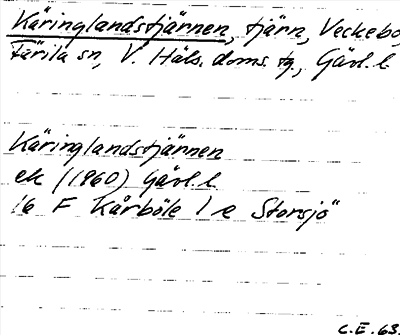 Käringlandstjärnen, tjärn, Veckebo,
Färila sn, V. Häls. doms. tg., Gävl. l
Käringlandstjärnen
ek (1960) Gävl. l.
16 F Kårböle 1 e Storsjö"
C.E. 63.